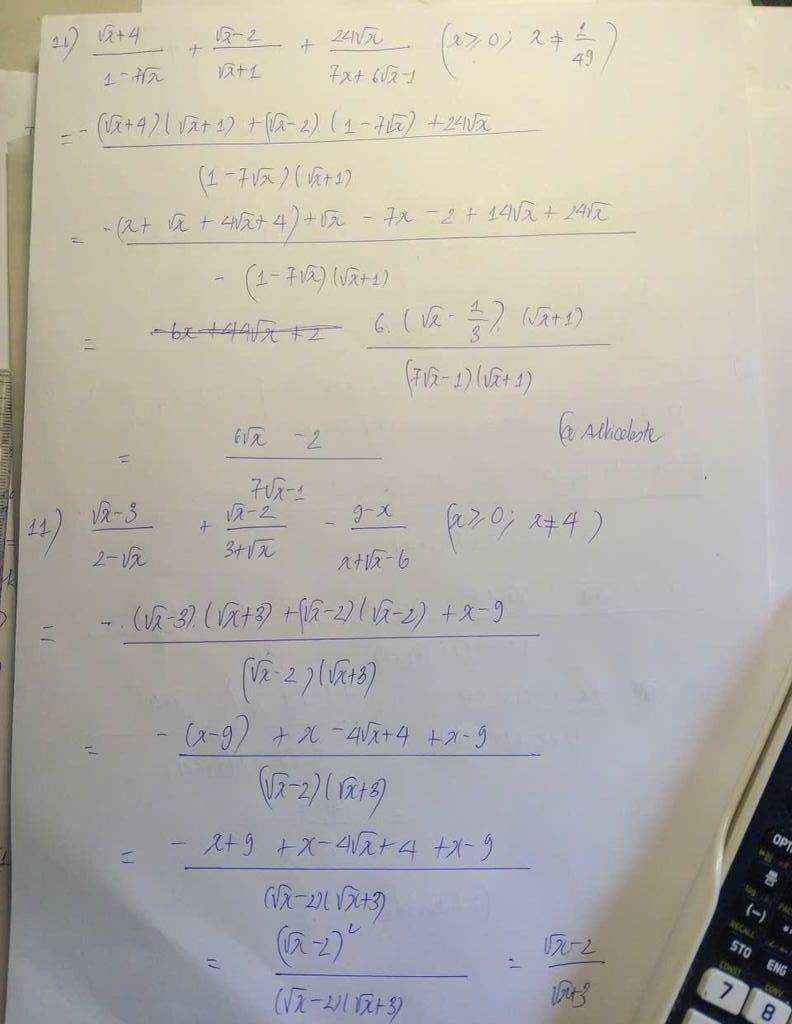 10) (√x+4)/(1-7√x) + (√x-2)/(√x+1) + 24√x/(7x+6√x-1) (x≥0; x≠1/49)
= (-(√x+4).(√x+1)+(√x-2).(1-7√x)+24√x)/((1-7√x)(√x+1))
= (-(x+√x+4√x+4)+√x-7x-2+14√x+24√x)/(-(1-7√x)(√x+1))
= (6.(√x-1/3).(√x+1))/((7√x-1)(√x+1))
= (6√x-2)/(7√x-1)
11) (√x-3)/(2-√x) + (√x-2)/(3+√x) - (9-x)/(x+√x-6) (x≥0; x≠4)
= (-(√x-3).(√x+3)+(√x-2)(√x-2)+x-9)/((√x-2)(√x+3))
= (-(x-9)+x-4√x+4+x-9)/((√x-2)(√x+3))
= (-x+9+x-4√x+4+x-9)/((√x-2)(√x+3))
= (√x-2)²/((√x-2)(√x+3)) = (√x-2)/(√x+3)
OPTN
(-)
RECALL
STO ENG
CONST
7 8